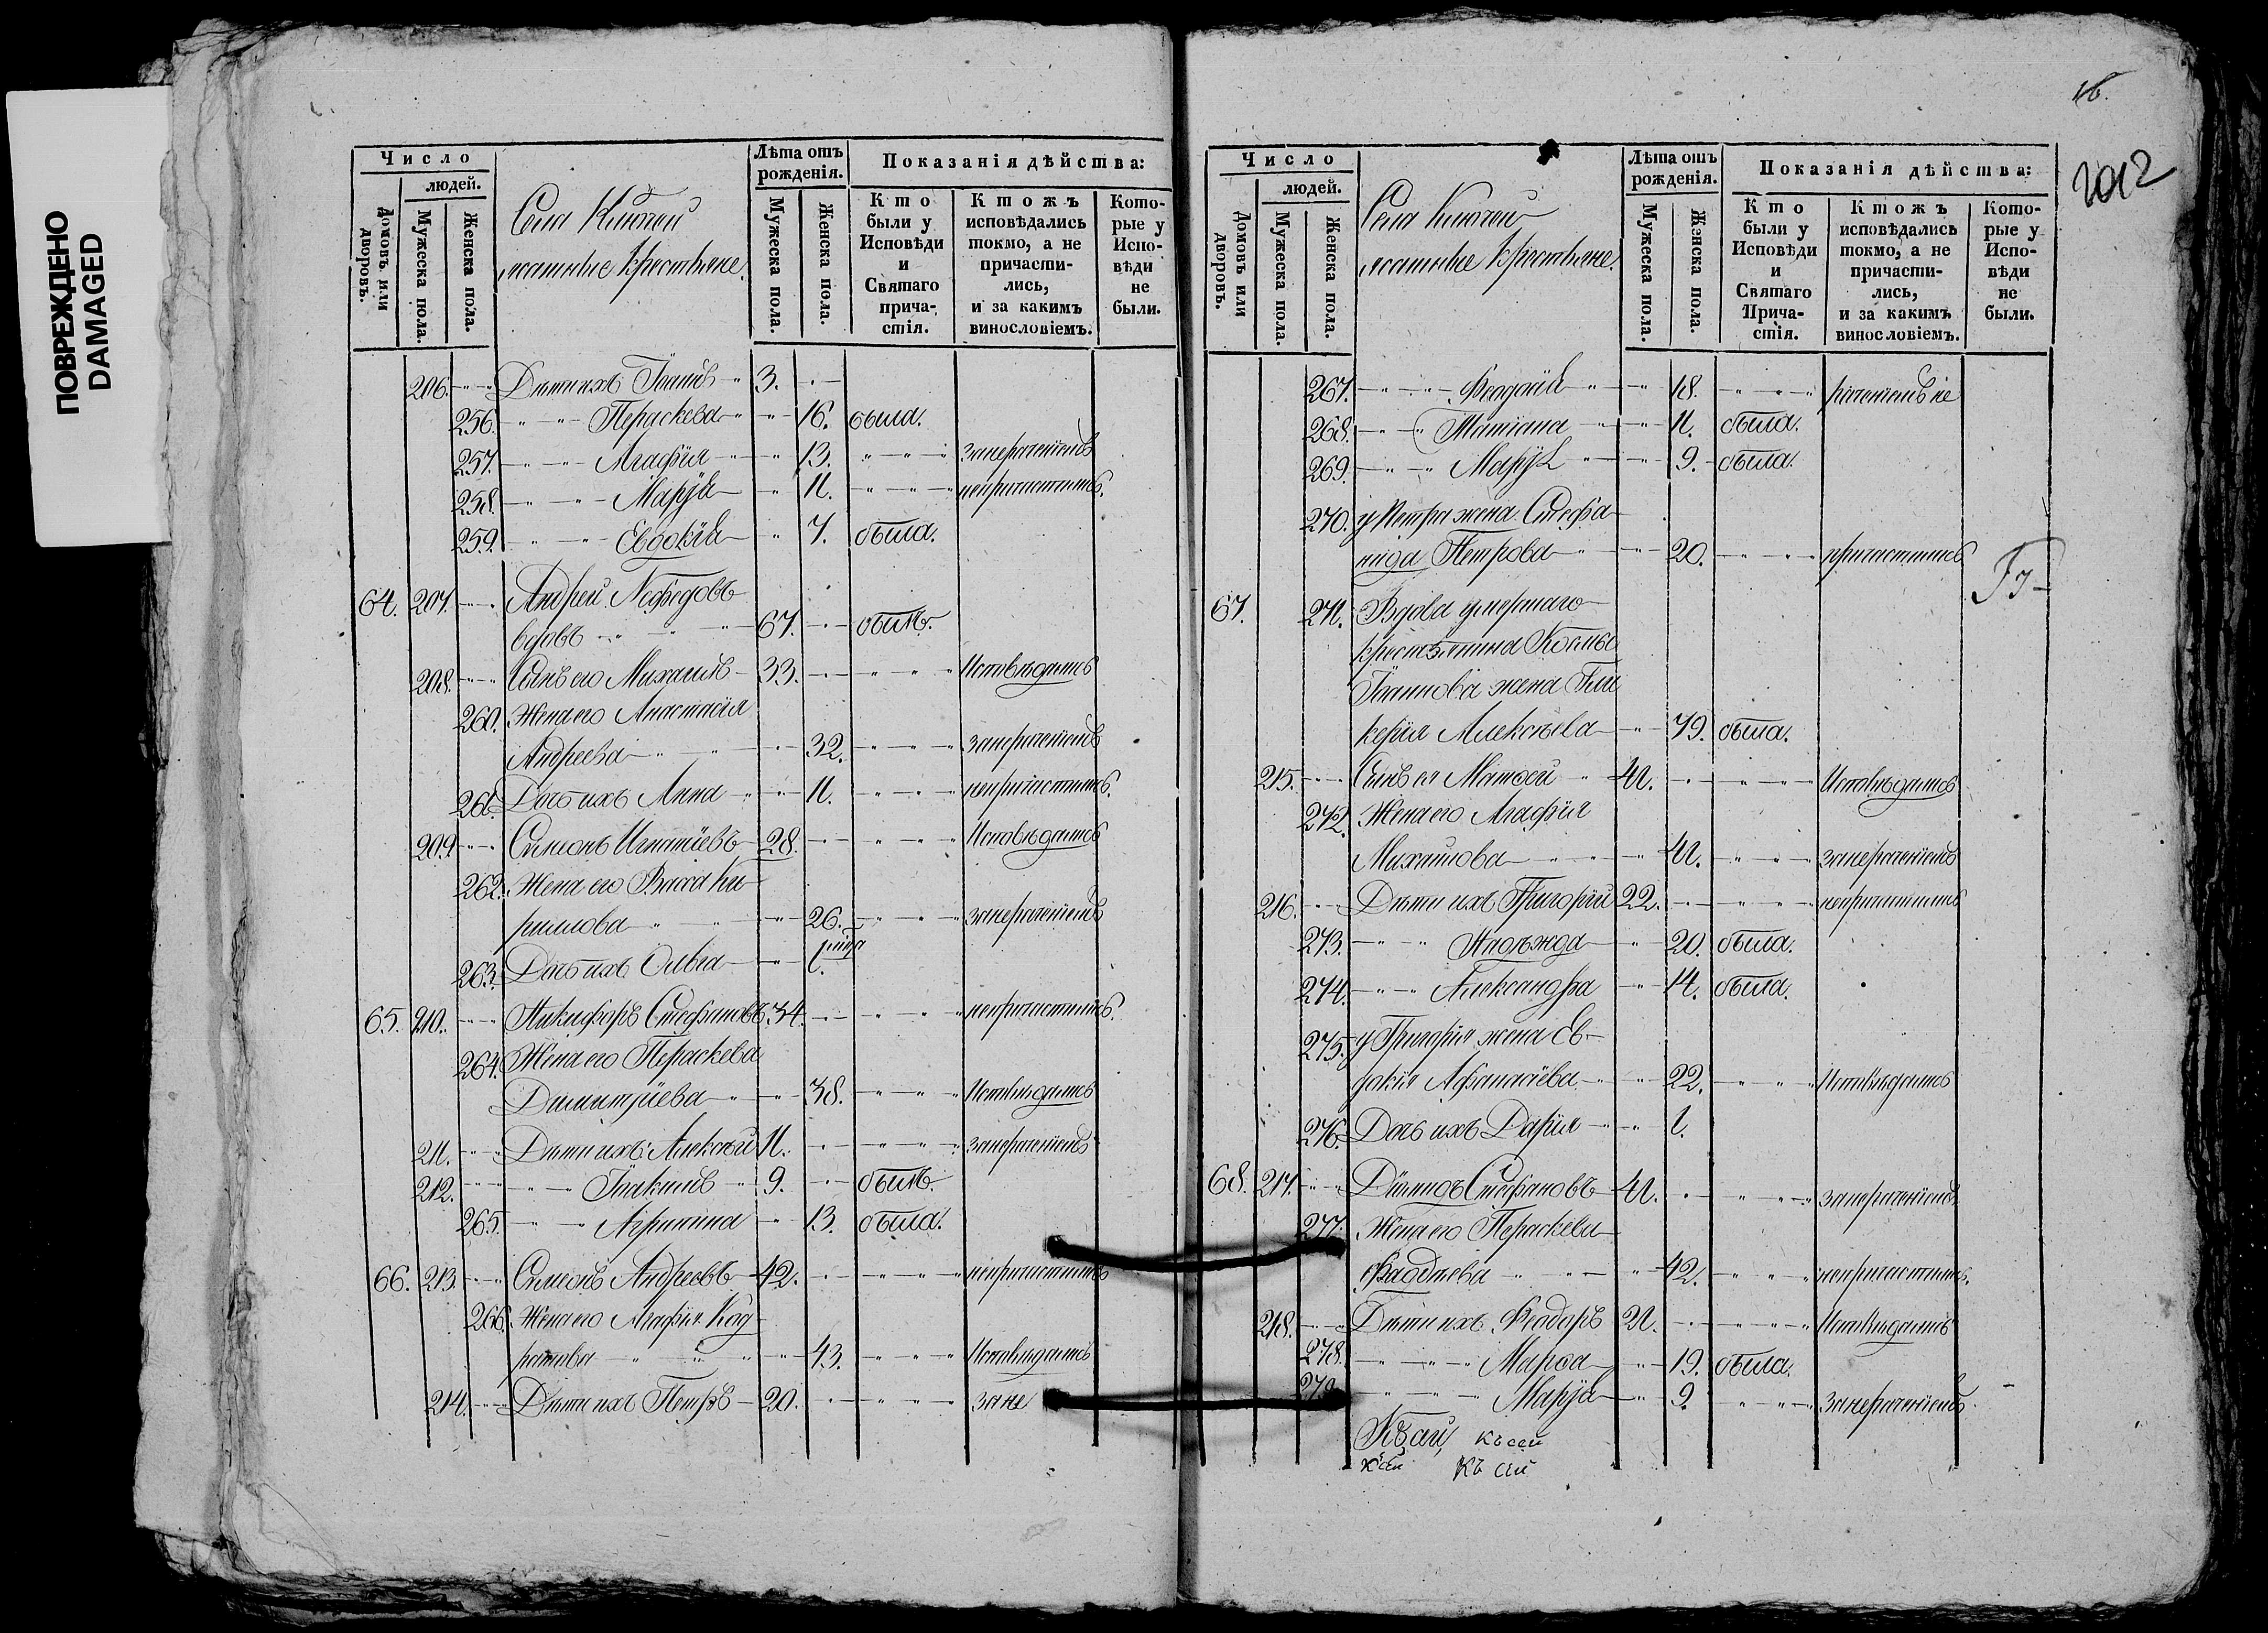 ПОВРЕЖДЕНО
DAMAGED
Число
людей.
Домовъ или дворовъ.
Мужеска пола.
Женска пола.
Села Ключей
ясашные крестьяне.
Лѣта отъ рожденія.
Мужеска пола.
Женска пола.
Показанія дѣйства:
Кто были у Исповѣди и Святаго прича-стія.
Ктожъ исповѣдались токмо, а не причасти-лись, и за какимъ винословіемъ.
Кото-рые у Испо-вѣди не были.
206. Дѣти ихъ Іоаннъ 3.
256. Параскева 16. была.
257. Агафія 13. занераченіемъ
258. Марѳа 11. непричастились.
259. Евдокія 7. была.
64. 207. Андрей Нефедовъ
вдовъ 67. былъ.
208. Сынъ его Михаилъ 33. Исповѣдались
260. Жена его Анастасія
Андреева 32. занераченіемъ
261. Дочь ихъ Анна 11. непричастились.
209. Симеонъ Игнатіевъ 28. Исповѣдались
262. Жена его Васса Ки-
рилова 26. занераченіемъ
263. Дочь ихъ Ольга 1.
65. 210. Никифоръ Стефановъ 34. непричастились.
264. Жена его Параскева
Димитріева 38. Исповѣдались
211. Дѣти ихъ Алексѣй 11. занераченіемъ
212. Іоакимъ 9. былъ.
265. Агрипина 13. была.
66. 213. Симеонъ Андреевъ 42. непричастились
266. Жена его Агафія Код-
ратова 43. Исповѣдались
214. Дѣти ихъ Петръ 20. зане
16.
2012
Число
людей.
Домовъ или дворовъ.
Мужеска пола.
Женска пола.
Села Ключей
ясашные крестьяне.
Лѣта отъ рожденія.
Мужеска пола.
Женска пола.
Показанія дѣйства:
Кто были у Исповѣди и Святаго Прича-стія.
Ктожъ исповѣдались токмо, а не причасти-лись, и за какимъ винословіемъ.
Кото-рые у Испо-вѣди не были.
267. 18. раченіемъ не
268. Татіана 11. была.
269. Марѳа 9. была.
270. у Петра жена Стефа-
нида Петрова 20. причастились
67. 271. Вдова умершаго
крестьянина Космы
Іоаннова жена Гли-
керія Алексѣева 79. была.
215. Сынъ ея Матѳей 41. Исповѣдались
272. Жена его Агафія
Михаилова 41. занераченіемъ
216. Дѣти ихъ Григорій 22. непричастились
273. Надежда 20. была.
274. Александра 14. была.
275. у Григорія жена Ев-
докія Афанасіева 22. Исповѣдались
276. Дочь ихъ Дарія 1.
68. 217. Діомидъ Стефановъ 41. занераченіемъ
277. Жена его Параскева
Фаддѣева 42. непричастились.
218. Дѣти ихъ Ѳеодоръ 21. Исповѣдались
278. Марѳа 19. была.
279. Марія 9. занераченіемъ
къ сей
къ сей